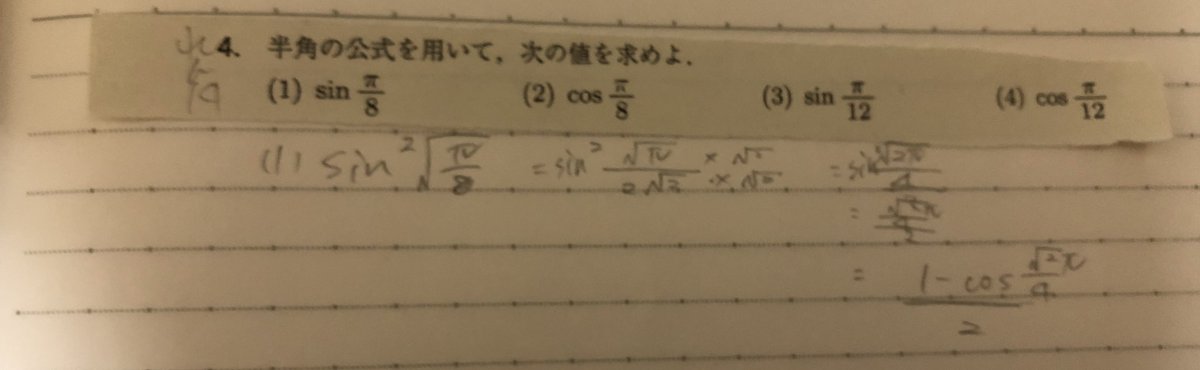 4. 半角の公式を用いて，次の値を求めよ．
(1) sin π/8 (2) cos π/8 (3) sin π/12 (4) cos π/12
(1) sin² √(π/8) = sin² √π/(2√2) ×√2/×√2 = sin √(2π)/4
= 
= (1 - cos (√2π/4))/2